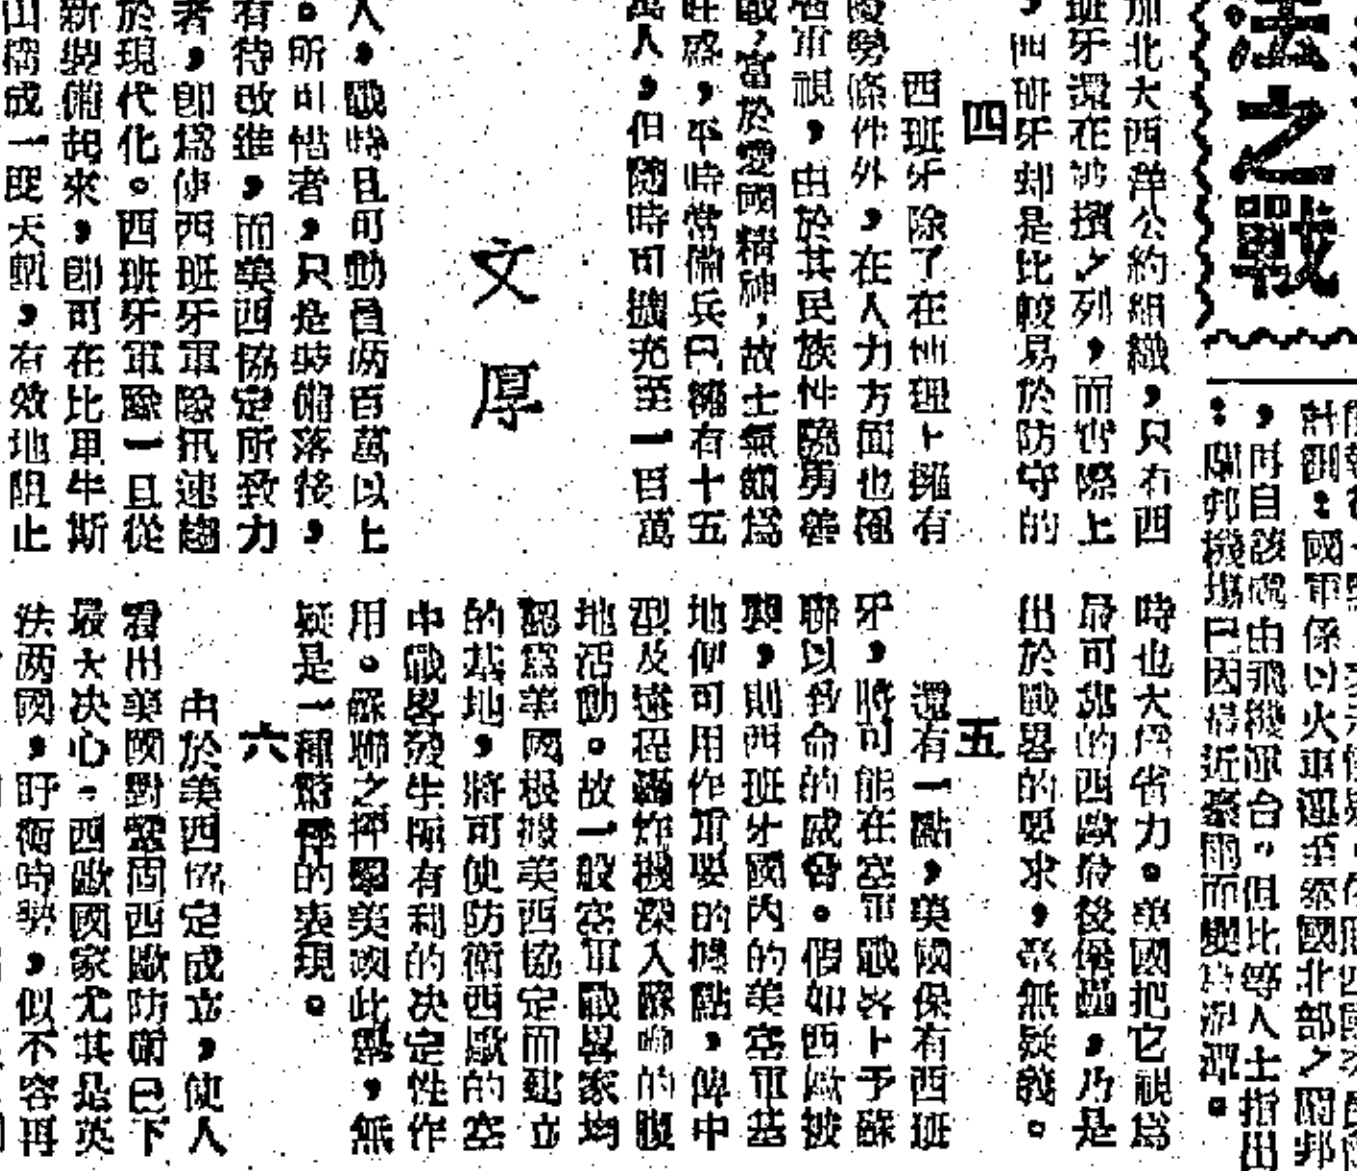 法之戰
加北大西洋公約組織，只有西
班牙還在被擯之列，而實際上
，西班牙却是比較易於防守的
四
西班牙除了在地理上擁有
優勢條件外，在人力方面也極
軍視，由於其民族性驍勇善
戰，富於愛國精神，故士氣頗爲
旺盛，平時常備兵已擁有十五
萬人，但隨時可擴充至一百萬
文厚
人，戰時且可動員两百萬以上
。所可惜者，只是裝備落後，
有待改進，而美西協定所致力
者，卽爲使西班牙軍隊迅速趨
於現代化。西班牙軍隊一旦從
新裝備起來，卽可在比里牛斯
山構成一度天塹，有效地阻止
時也大爲省力。美國把它視爲
最可靠的西歐最後堡壘，乃是
出於戰畧的要求，毫無疑義。
五
還有一點，美國保有西班
牙，將可能在空軍戰畧上予蘇
聯以致命的威脅。假如西歐被
，則西班牙國內的美空軍基
地仰可用作重要的據點，俾中
型及遠程轟炸機深入蘇聯的腹
地活動。故一般空軍戰畧家均
認爲美國根據美西協定而建立
的基地，將可使防衛西歐的空
中戰畧發生極有利的决定性作
用。蘇聯之抨擊美政此舉，無
疑是一種驚悸的表現。
六
由於美西協定成立，使人
看出美國對鞏固西歐防衛已下
最大决心。西歐國家尤其是英
法两國，盱衡時勢，似不容再
計劃：國軍係以火車運至泰國北部之閬邦
，再自該處由飛機運台。但此等人士指出
：閬邦機塲已因最近豪雨而變爲泥潭。